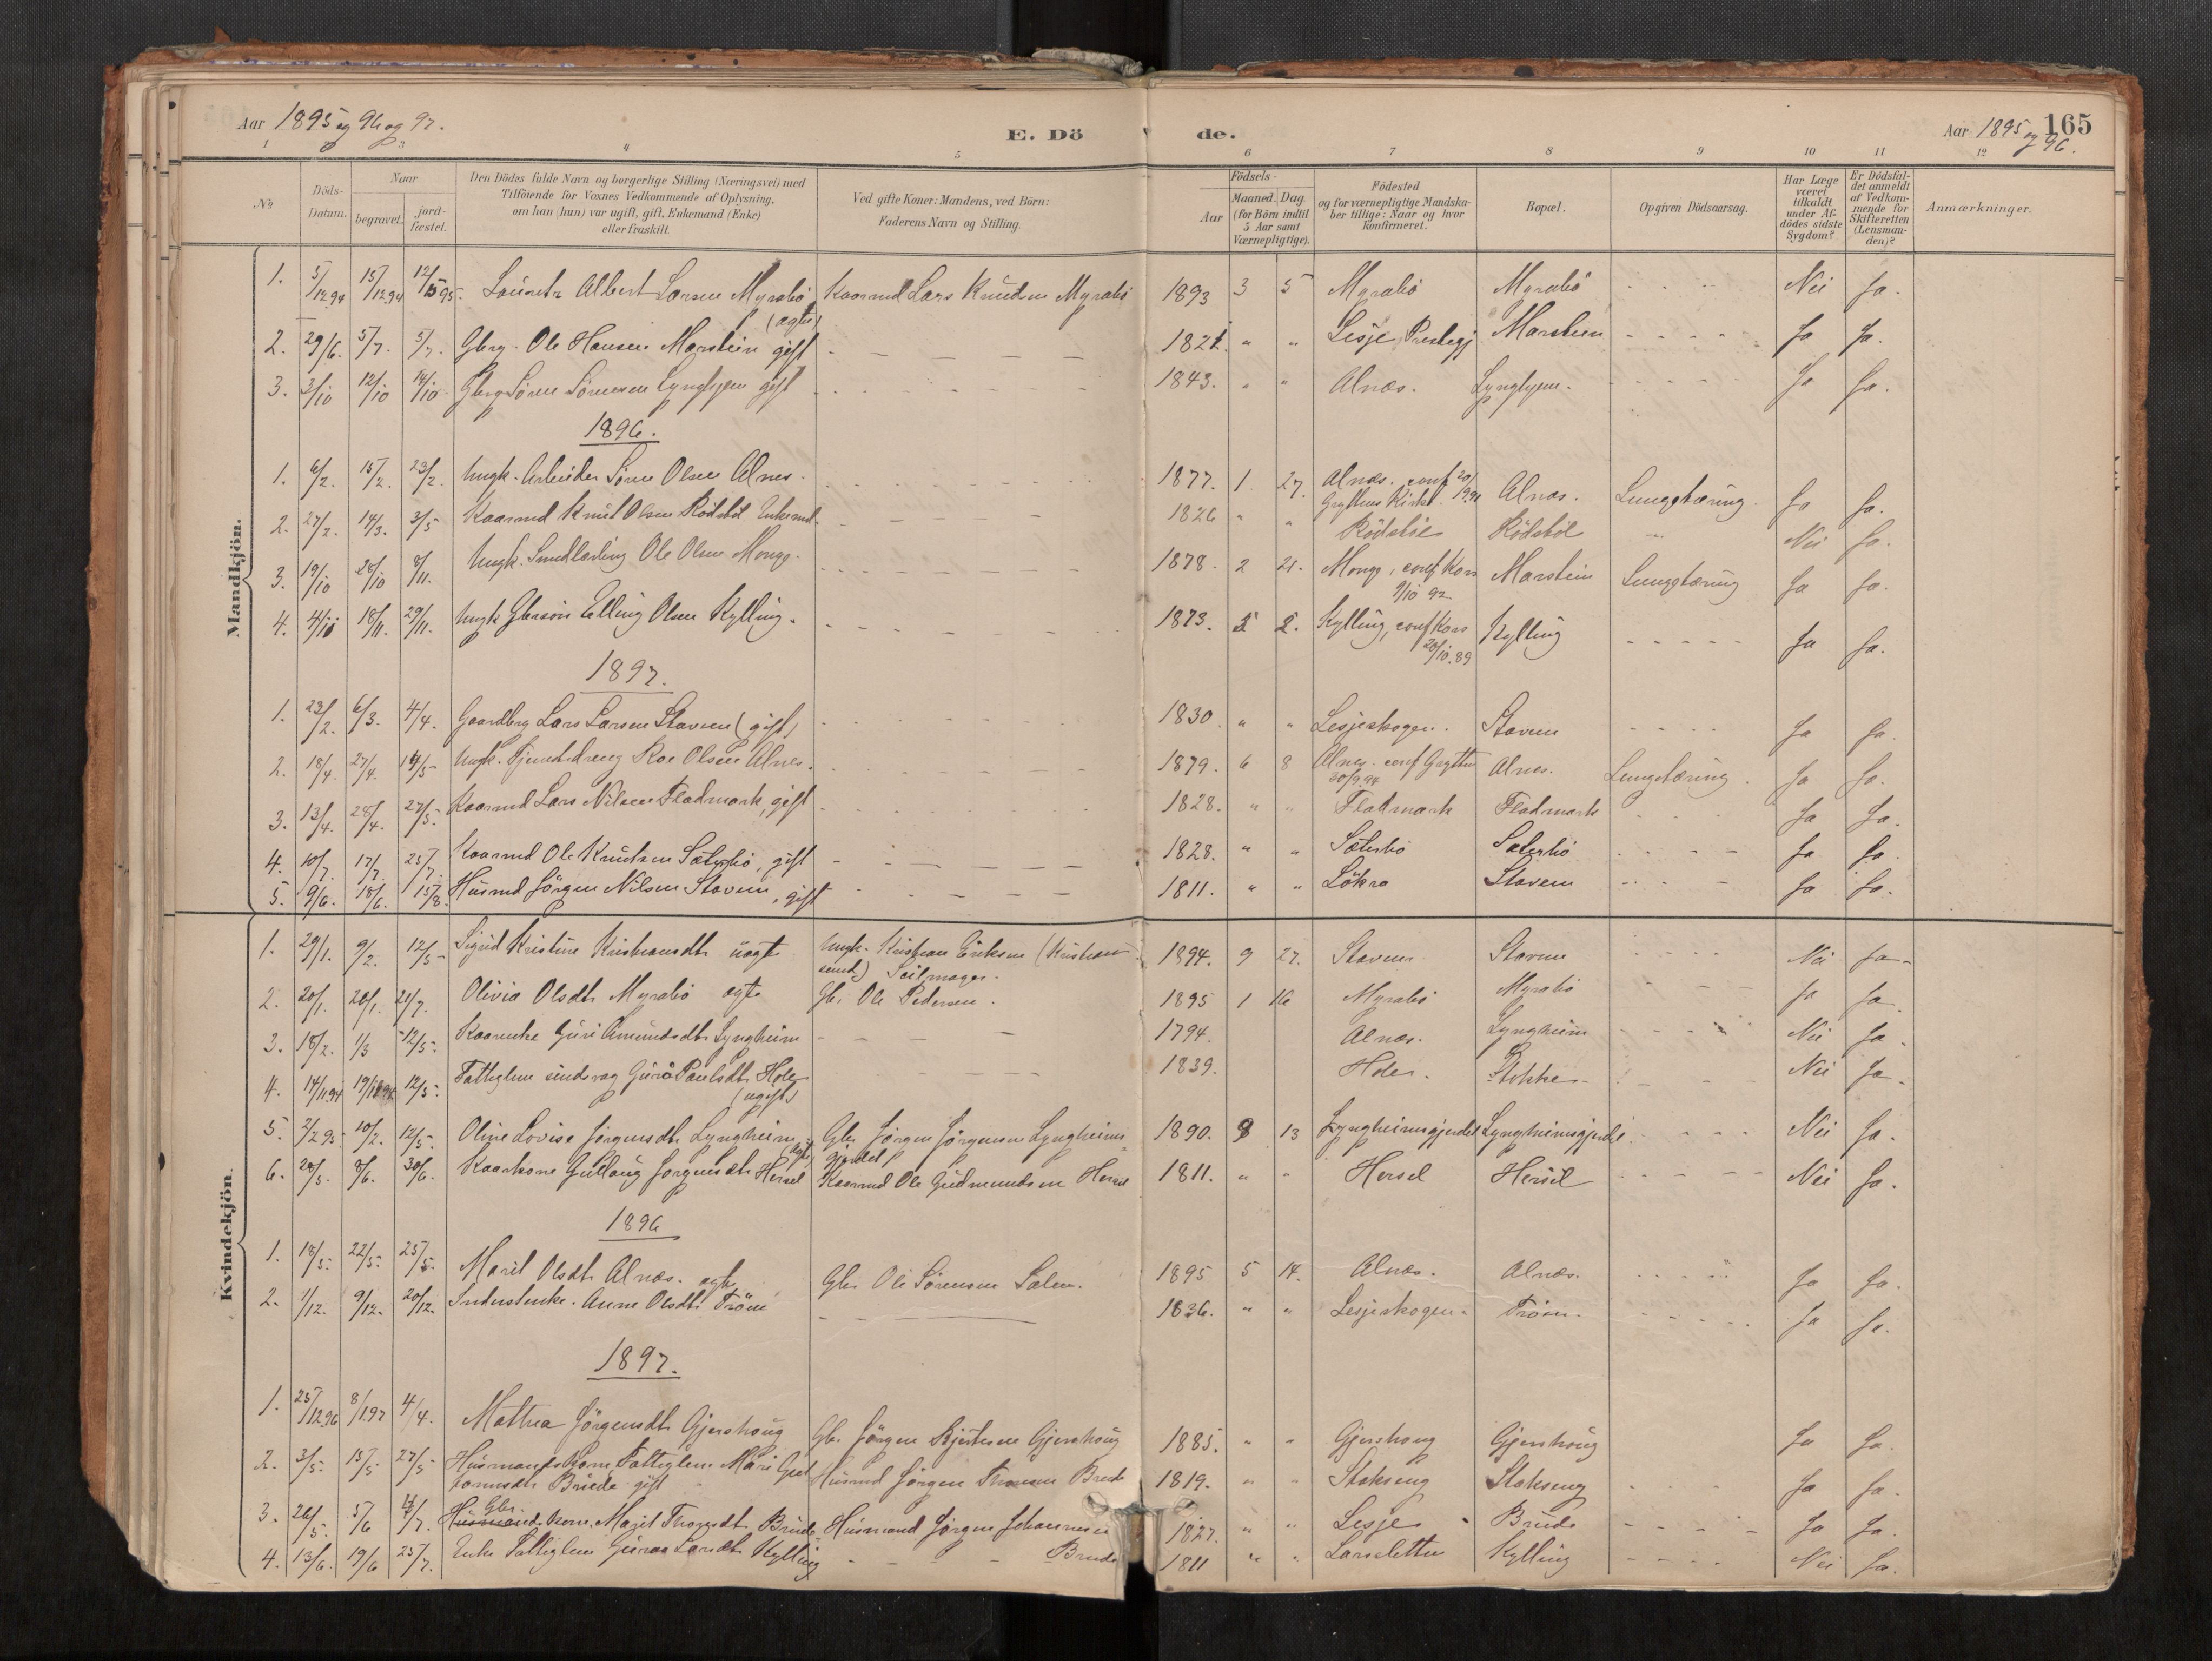 Aar 1895 og 96 og 97.
E. Döde.
Aar 1895 og 96.
165
1 3 4 5 6 7 8 9 10 11 12
No
Döds-Datum.
Naar
begravet.
jord-fæstet.
Den Dödes fulde Navn og borgerlige Stilling (Næringsvei) med
Tilföiende for Voxnes Vedkommende af Oplysning,
om han (hun) var ugift, gift, Enkemand (Enke)
eller fraskilt.
Ved gifte Koner: Mandens, ved Börn:
Faderens Navn og Stilling.
Födsels-
Aar
Maaned. Dag.
(for Börn indtil
5 Aar samt
Værnepligtige).
Födested
og for værnepligtige Mandska-
ber tillige: Naar og hvor
konfirmeret.
Bopæl.
Opgiven Dödsaarsag.
Har Læge
været
tilkaldt
under Af-
dödes sidste
Sygdom?
Er Dödsfal-
det anmeldt
af Vedkom-
mende for
Skifteretten
(Lensman-
den)?
Anmærkninger.
Mandkjön.
1. 5/12 94 15/12 94 12/5 95. Albert Larsen Myrabö (ægte) Kaarmd Lars Knudsen Myrabö 1893 3 5 Myrabö Myrabö Nei Ja.
2. 29/6. 5/7. 5/7. Gbrg. Ole Hansen Marstein gift 1821. " " Lesje Prestegj Marstein Ja Ja.
3. 3/10 12/10 14/10 Gbrg Sören Sörensen Lyngheim gift 1843. " " Alnæs. Lyngheim. Ja Ja.
1896.
1. 6/2. 15/2. 23/2. Ungk. Arbeider Sören Olsen Alnes. 1877. 1. 27. Alnæs. conf 20/9 91 Gryttens Kirke. Alnæs. Lungetæring. Ja Ja.
2. 27/2. 14/3. 3/5 Kaarmd Knut Olsen Rödstöl Enkemd. 1826 " " Rödstöl Rödstöl Nei Ja.
3. 19/10 28/10 8/11. Ungk. Smedlærling Ole Olsen Monge. 1878. 2 21. Monge, conf Kors 9/10 92. Marstein Lungetæring Ja Ja.
4. 4/11 18/11. 29/11. Ungk Gbrsön Elling Olsen Kylling. 1873. 5 2. Kylling, conf Kors 20/10.89 Kylling Ja Ja.
1897.
1. 23/2. 6/3. 4/4. Gaardbrg Lars Larsen Stavem (gift) 1830. " " Lesjeskogen. Stavem Ja Ja.
2. 18/4. 27/4. 14/5 Ungk. Roe Olsen Alnes. 1879. 6 8 Alnes. conf Grytten 30/9 94 Alnæs. Lungetæring. Ja Ja.
3. 13/4. 28/4. 27/5. Kaarmd Lars Nilsen Fladmark, gift 1828. " " Fladmark Fladmark Ja Ja.
4. 10/7. 17/7. 25/7. Kaarmd Ole Knudsen Sæterbö, gift 1828. " " Sæterbö Sæterbö Ja Ja.
5. 9/6. 18/6. 15/8. Husmd Jörgen Nilsen Stavem, gift 1811. " " Lökra Stavem Ja Ja.
Kvindekjön.
1. 29/1. 9/2. 12/5 Sigrid Kristine Kristiansdtr uægte Ungk. Kristian Eriksen (Kristian-
sund) Seilmager. 1894. 9 27. Stavem Stavem Nei Ja.
2. 20/1. 28/1. 21/7. Olivia Olsdtr Myrabö ægte Gbr. Ole Pedersen. 1895 1 16 Myrabö Myrabö Ja Ja.
3. 18/2. 1/3 12/5. Kaarenke Guri Amundsdtr Lyngheim 1794. Alnæs. Lyngheim Nei Ja.
4. 14/11 94 19/11 94 12/5. Fattiglem Paulsdtr Hole (ugift) 1839. Hole. Stokke Nei Ja.
5. 2/2 95 10/2. 12/5. Oline Lovise Jörgensdtr Lyngheim ægte Gbr Jörgen Jörgensen Lyngheims-
gjerdet 1890. 8 13 Lyngheimsgjerdet Lyngheimsgjerdet Nei Ja.
6. 28/5. 8/6. 30/6. Kaarkone Gullaug Jörgensdtr Hersel Kaarmd Ole Gudmundsen Hersel 1811. " " Hersel Hersel Nei Ja.
1896
1. 18/5. 22/5. 25/5. Marit Olsdtr Alnæs. ægte Gbr Ole Sörensen Salen. 1895 5 14. Alnæs. Alnæs. Ja Ja.
2. 1/12. 9/12. 20/12. Anne Olsdtr Tröen 1836. " " Lesjeskogen. Tröen. Ja Ja.
1897.
1. 25/12 96 8/1 97 4/4. Mathea Jörgensdtr Gjershoug Gbr Jörgen Gjershoug 1885. " " Gjershoug Gjershoug Ja Ja.
2. 3/5. 15/5 27/5 Husmands Kone Fattiglem Mari Gut-
tormsdtr Brude gift Husmd Jörgen Thomsen Brude 1819. " " Stokseng Stokseng Ja Ja.
3. 26/5. 5/6 /7. Husmands Gbr kone. Marit Thomsdtr Brude Husmand Jörgen Johannesen
Brude 1827. " " Lesje Brude Ja Ja.
4. 13/6. 19/6 25/7. Enke Fattiglem Larsdtr Kylling 1811 " " Larsletten Kylling Nei Ja.